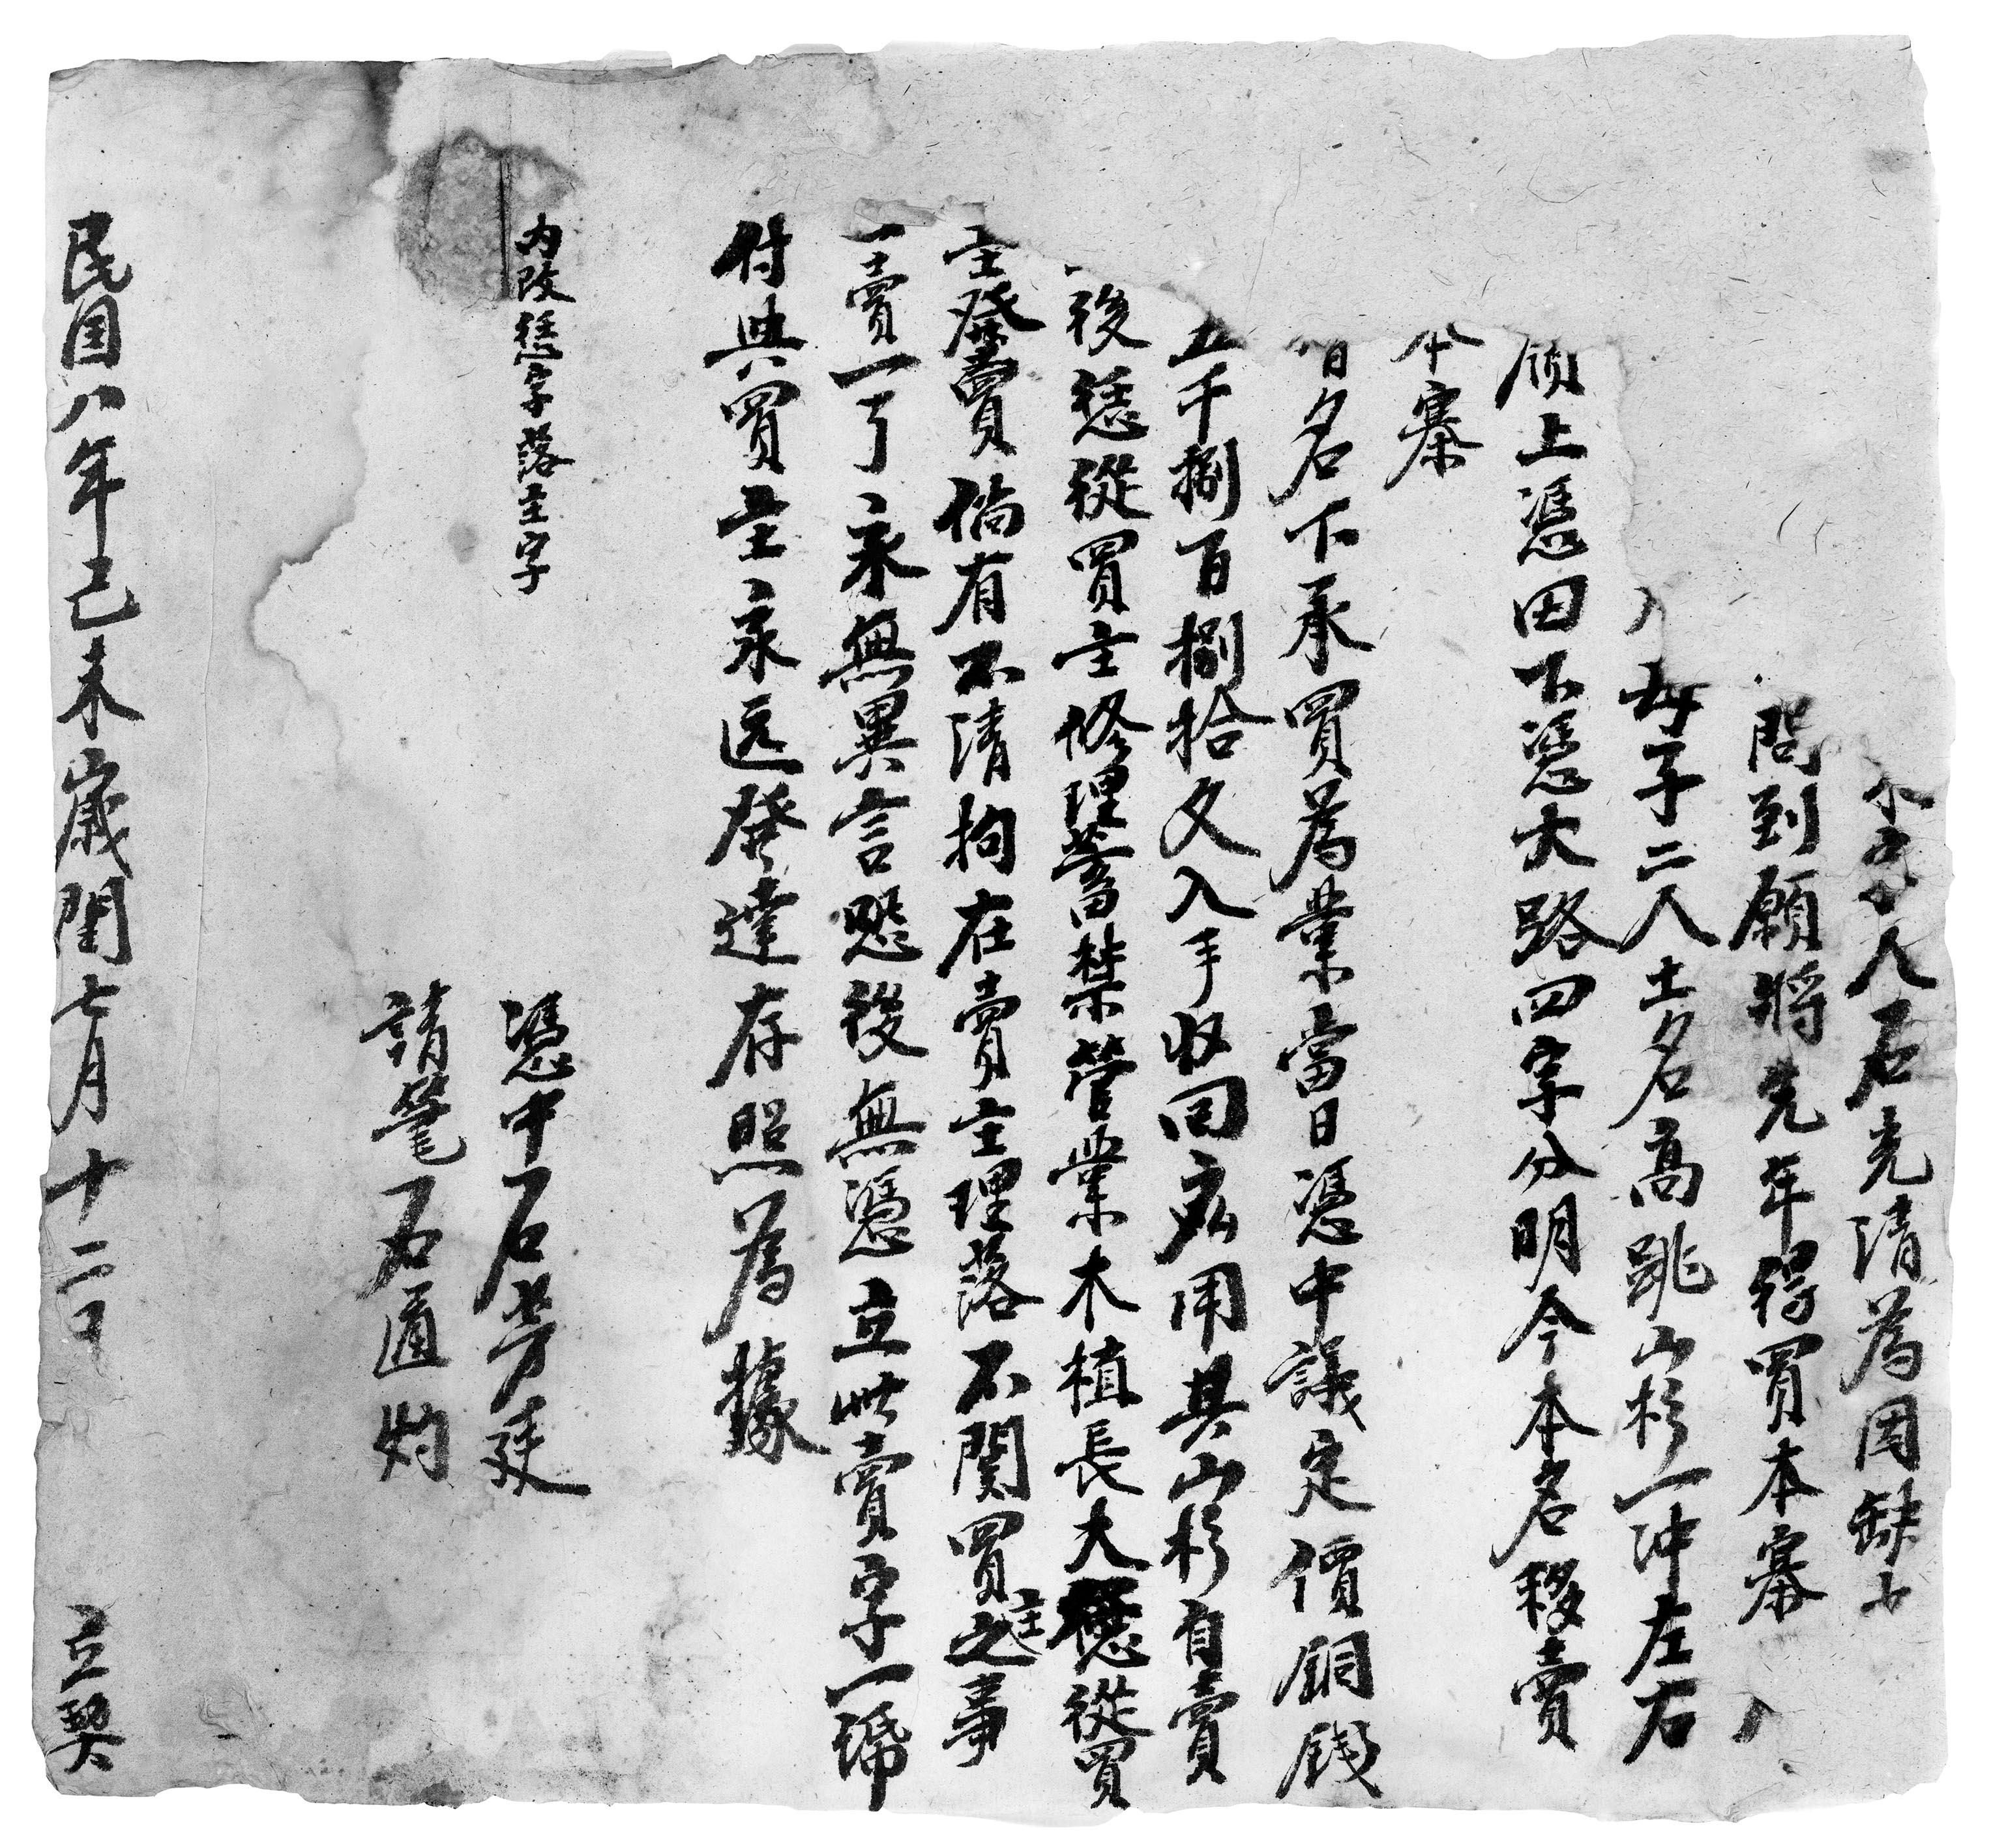 人石光清為因缺少
問到願將先年得買本寨
母子二人土名高跳山杉一冲左右
領上憑田下憑大路四字分明今本名移賣
本寨
名下承買為業當日憑中議定價銅錢
五千捌百捌拾文入手收回應用其山杉自賣
後恁從買主修理蓄禁管業木植長大恁從買
主發賣倘有不清拘在賣主理落不関買主之事
一賣一了永無異言恐後無憑立此賣字一張
付與買主永远發達存照為據
内改恁字落主字
憑中石芳廷
請筆石道灼
民国八年己未歲閏七月十二日 立契